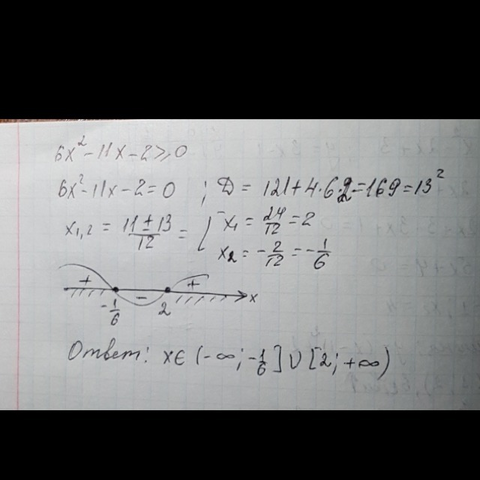 6x²-11x-2≥0
6x²-11x-2=0 ; D = 121+4·6·2=169=13²
x₁,₂ = (11±13)/12 = [ x₁ = 24/12 = 2
x₂ = -2/12 = -1/6
+ - + x
-1/6 2
Ответ: x∈(-∞; -1/6]∪[2; +∞)